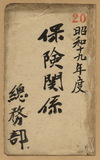 20
昭和十九年度
保険関係
総務部